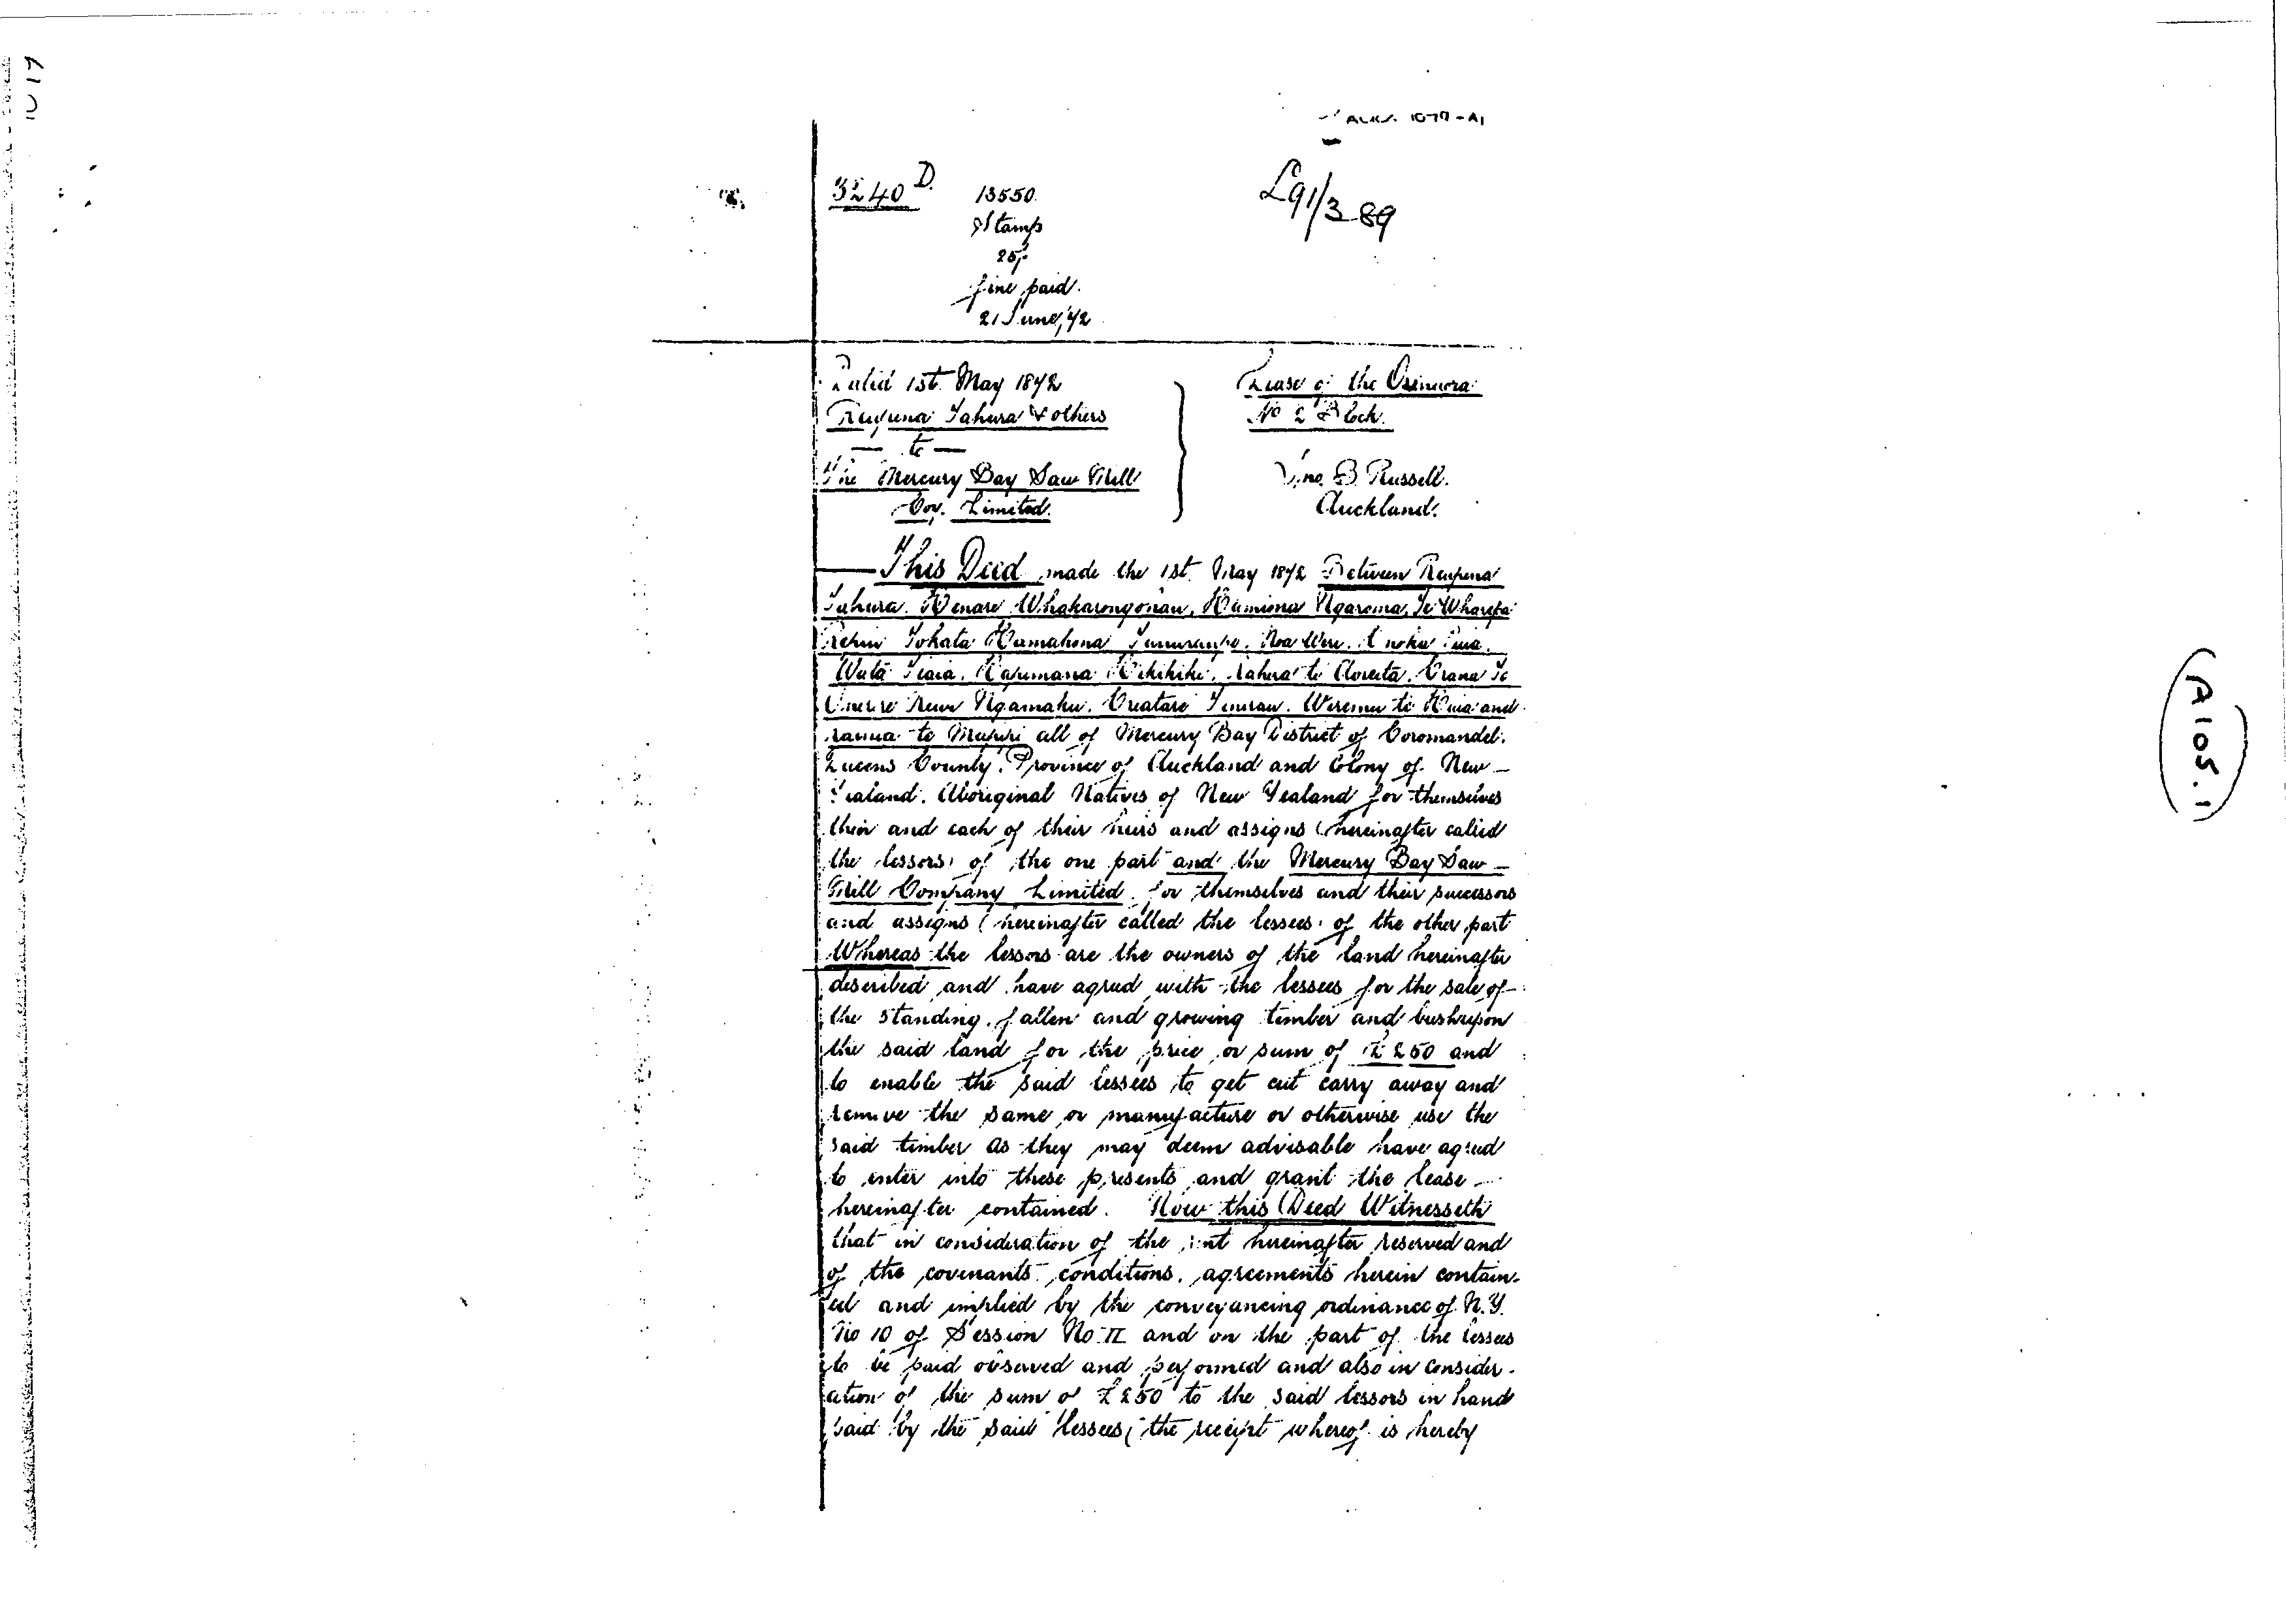 3240 D. 13550. L91/389
Stamp
25/-
fine paid.
21 June, 72
Dated 1st. May 1872
Lease of the
Tahura & others
No 2 Block.
— to —
The Mercury Bay Saw Mill
Coy. Limited.
Jno. B. Russell.
Auckland.
This Deed made the 1st. May 1872 Between
Tahura. Henare Whakarongonau, Hamiona Ngaroma, Te Wharepa
Tokata Noa
Hikihiki. te
Ngamahu. Wiremu te and
te all of Mercury Bay District of Coromandel.
Queens County. Province of Auckland and Colony of New —
Zealand. Aboriginal Natives of New Zealand for themselves
their and each of their heirs and assigns (hereinafter called
the lessors) of the one part and the Mercury Bay Saw —
Mill Company Limited. for themselves and their successors
and assigns (hereinafter called the lessees) of the other part
Whereas the lessors are the owners of the land hereinafter
described and have agreed with the lessees for the sale of
the standing, fallen and growing timber and bush upon
the said land for the price or sum of £250 and
to enable the said lessees to get cut carry away and
remove the same or manufacture or otherwise use the
said timber as they may deem advisable have agreed
to enter into these presents and grant the lease —
hereinafter contained. Now this Deed Witnesseth
that in consideration of the rent hereinafter reserved and
of the covenants conditions, agreements herein contain-
ed and implied by the conveyancing ordinance of N.Z.
No 10 of Session No II and on the part of the lessees
to be paid observed and performed and also in consider-
ation of the sum of £250 to the said lessors in hand
paid by the said lessees (the receipt whereof is hereby
A105.1